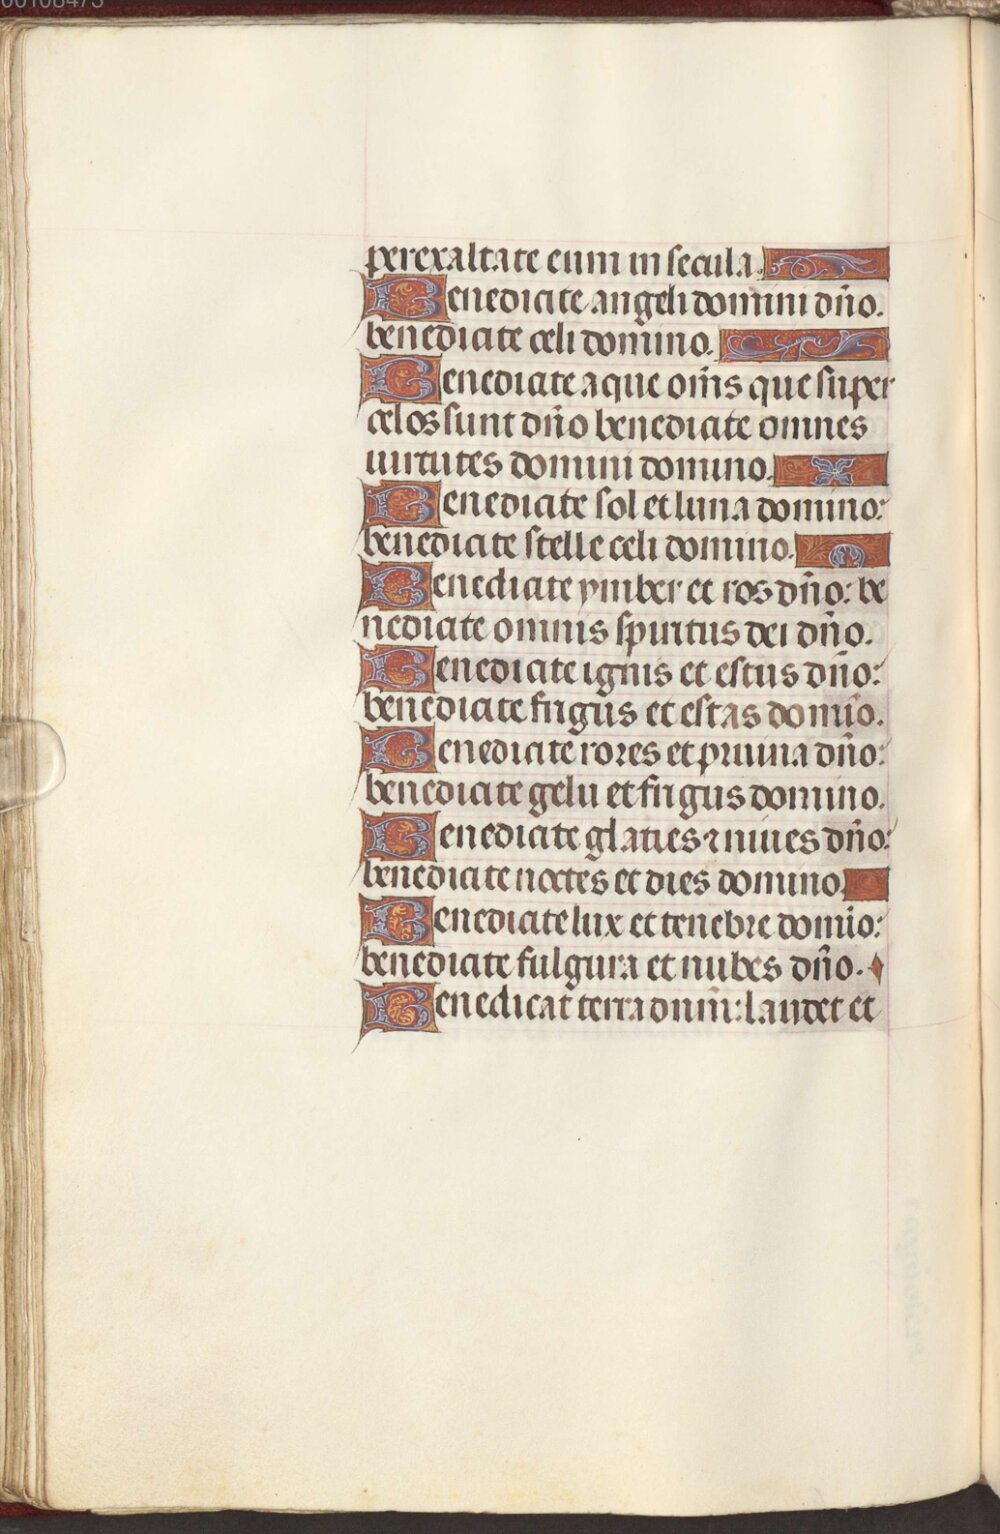 perexaltate eum in secula.
Benedicite angeli domini dño.
benedicite celi domino.
Benedicite aque om̃s que super
celos sunt dño benedicite omnes
uirtutes domini domino.
Benedicite sol et luna domino:
benedicite stelle celi domino.
Benedicite ymber et ros dño: be
nedicite omnis spiritus dei dño.
Benedicite ignis et estus dño:
benedicite frigus et estas domĩo.
Benedicite rores et pruina dño:
benedicite gelu et frigus domino.
Benedicite glacies ⁊ niues dño:
benedicite noctes et dies domino.
Benedicite lux et tenebre domĩo:
benedicite fulgura et nubes dño.
Benedicat terra dnm̃: laudet et